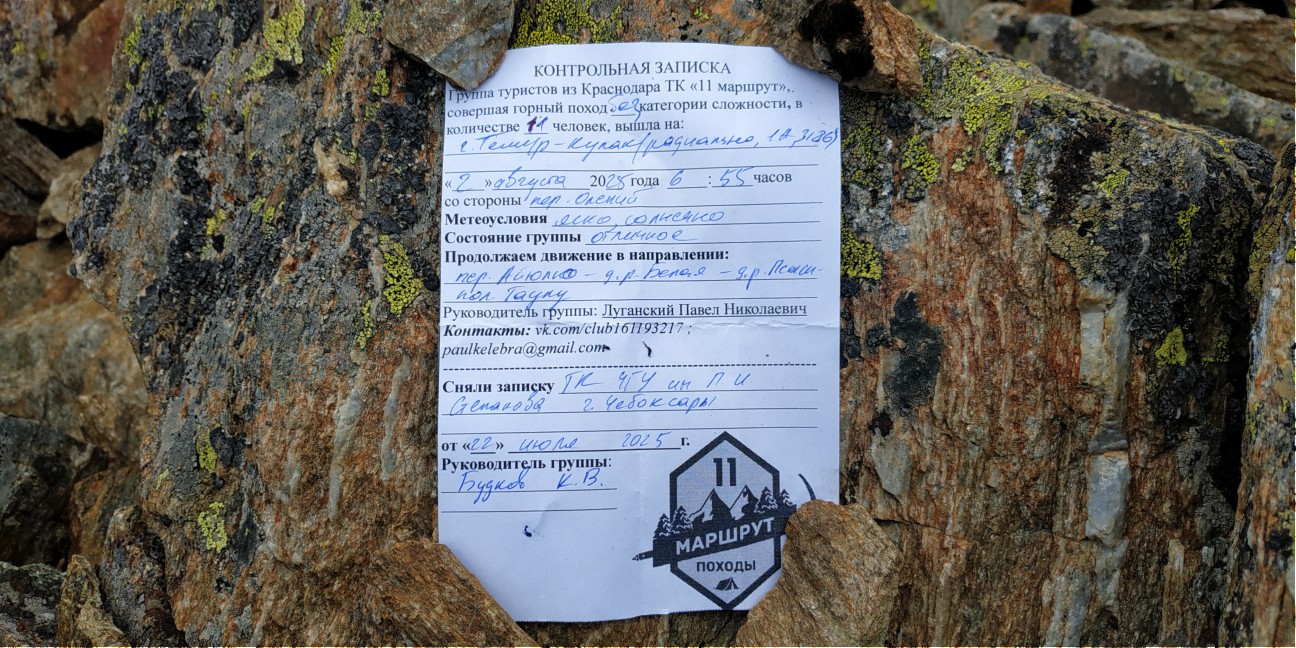 КОНТРОЛЬНАЯ ЗАПИСКА
Группа туристов из Краснодара ТК «11 маршрут»,
совершая горный поход без категории сложности, в
количестве 11 человек, вышла на:
г. Темир-Кулак (радиально, 1А, 3186)
«2» августа 2025 года 6:55 часов
со стороны пер.
Метеоусловия ясно, солнечно
Состояние группы отличное
Продолжаем движение в направлении:
пер. Айюлю – д.р. Белая – д.р. Псыш-
пол. Таулу
Руководитель группы: Луганский Павел Николаевич
Контакты: vk.com/club161193217 ;
paulkelebra@gmail.com
Сняли записку ТК ЧГУ им П И
Степанова г. Чебоксары
от «22» июля 2025 г.
Руководитель группы:
Будков К.В.
11
МАРШРУТ
ПОХОДЫ